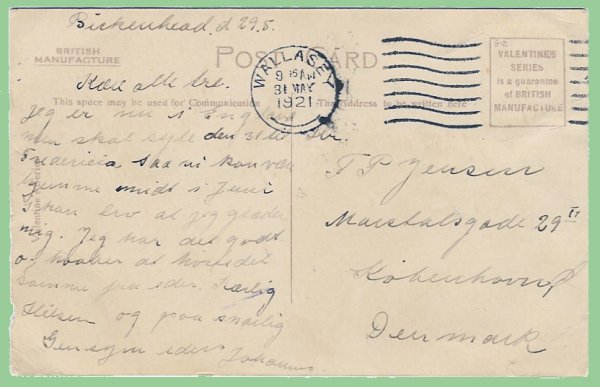 Birkenhead d 29.5.
BRITISH
MANUFACTURE
POST CARD
WALLASEY
9 15 AM
31 MAY
1921
VALENTINE'S
SERIES
is a guarantee
of BRITISH
MANUFACTURE
This space may be used for Communication
The Address to be written here
Kære alle tre.
Jeg er nu i England
men skal sejle den 31 til
Fredericia saa vi kan være
hjemme midt i Juni
I kan tro at jeg glæder
mig. Jeg har det godt
og haaber at høre det
samme fra eder. Kærlig
Hilsen og paa snarlig
Gensyn eders Johannes
T P Jensen
Marstalsgade 29 II
København Ø
Denmark